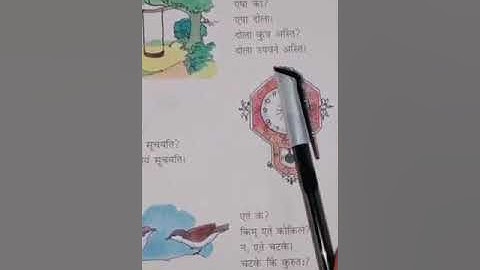 एषा का?
एषा दोला।
दोला कुत्र अस्ति?
दोला उपवने अस्ति।
सूचयति?
सूचयति।
एते के?
किम् एते कोकिले?
न, एते चटके।
चटके किं कुरुतः?